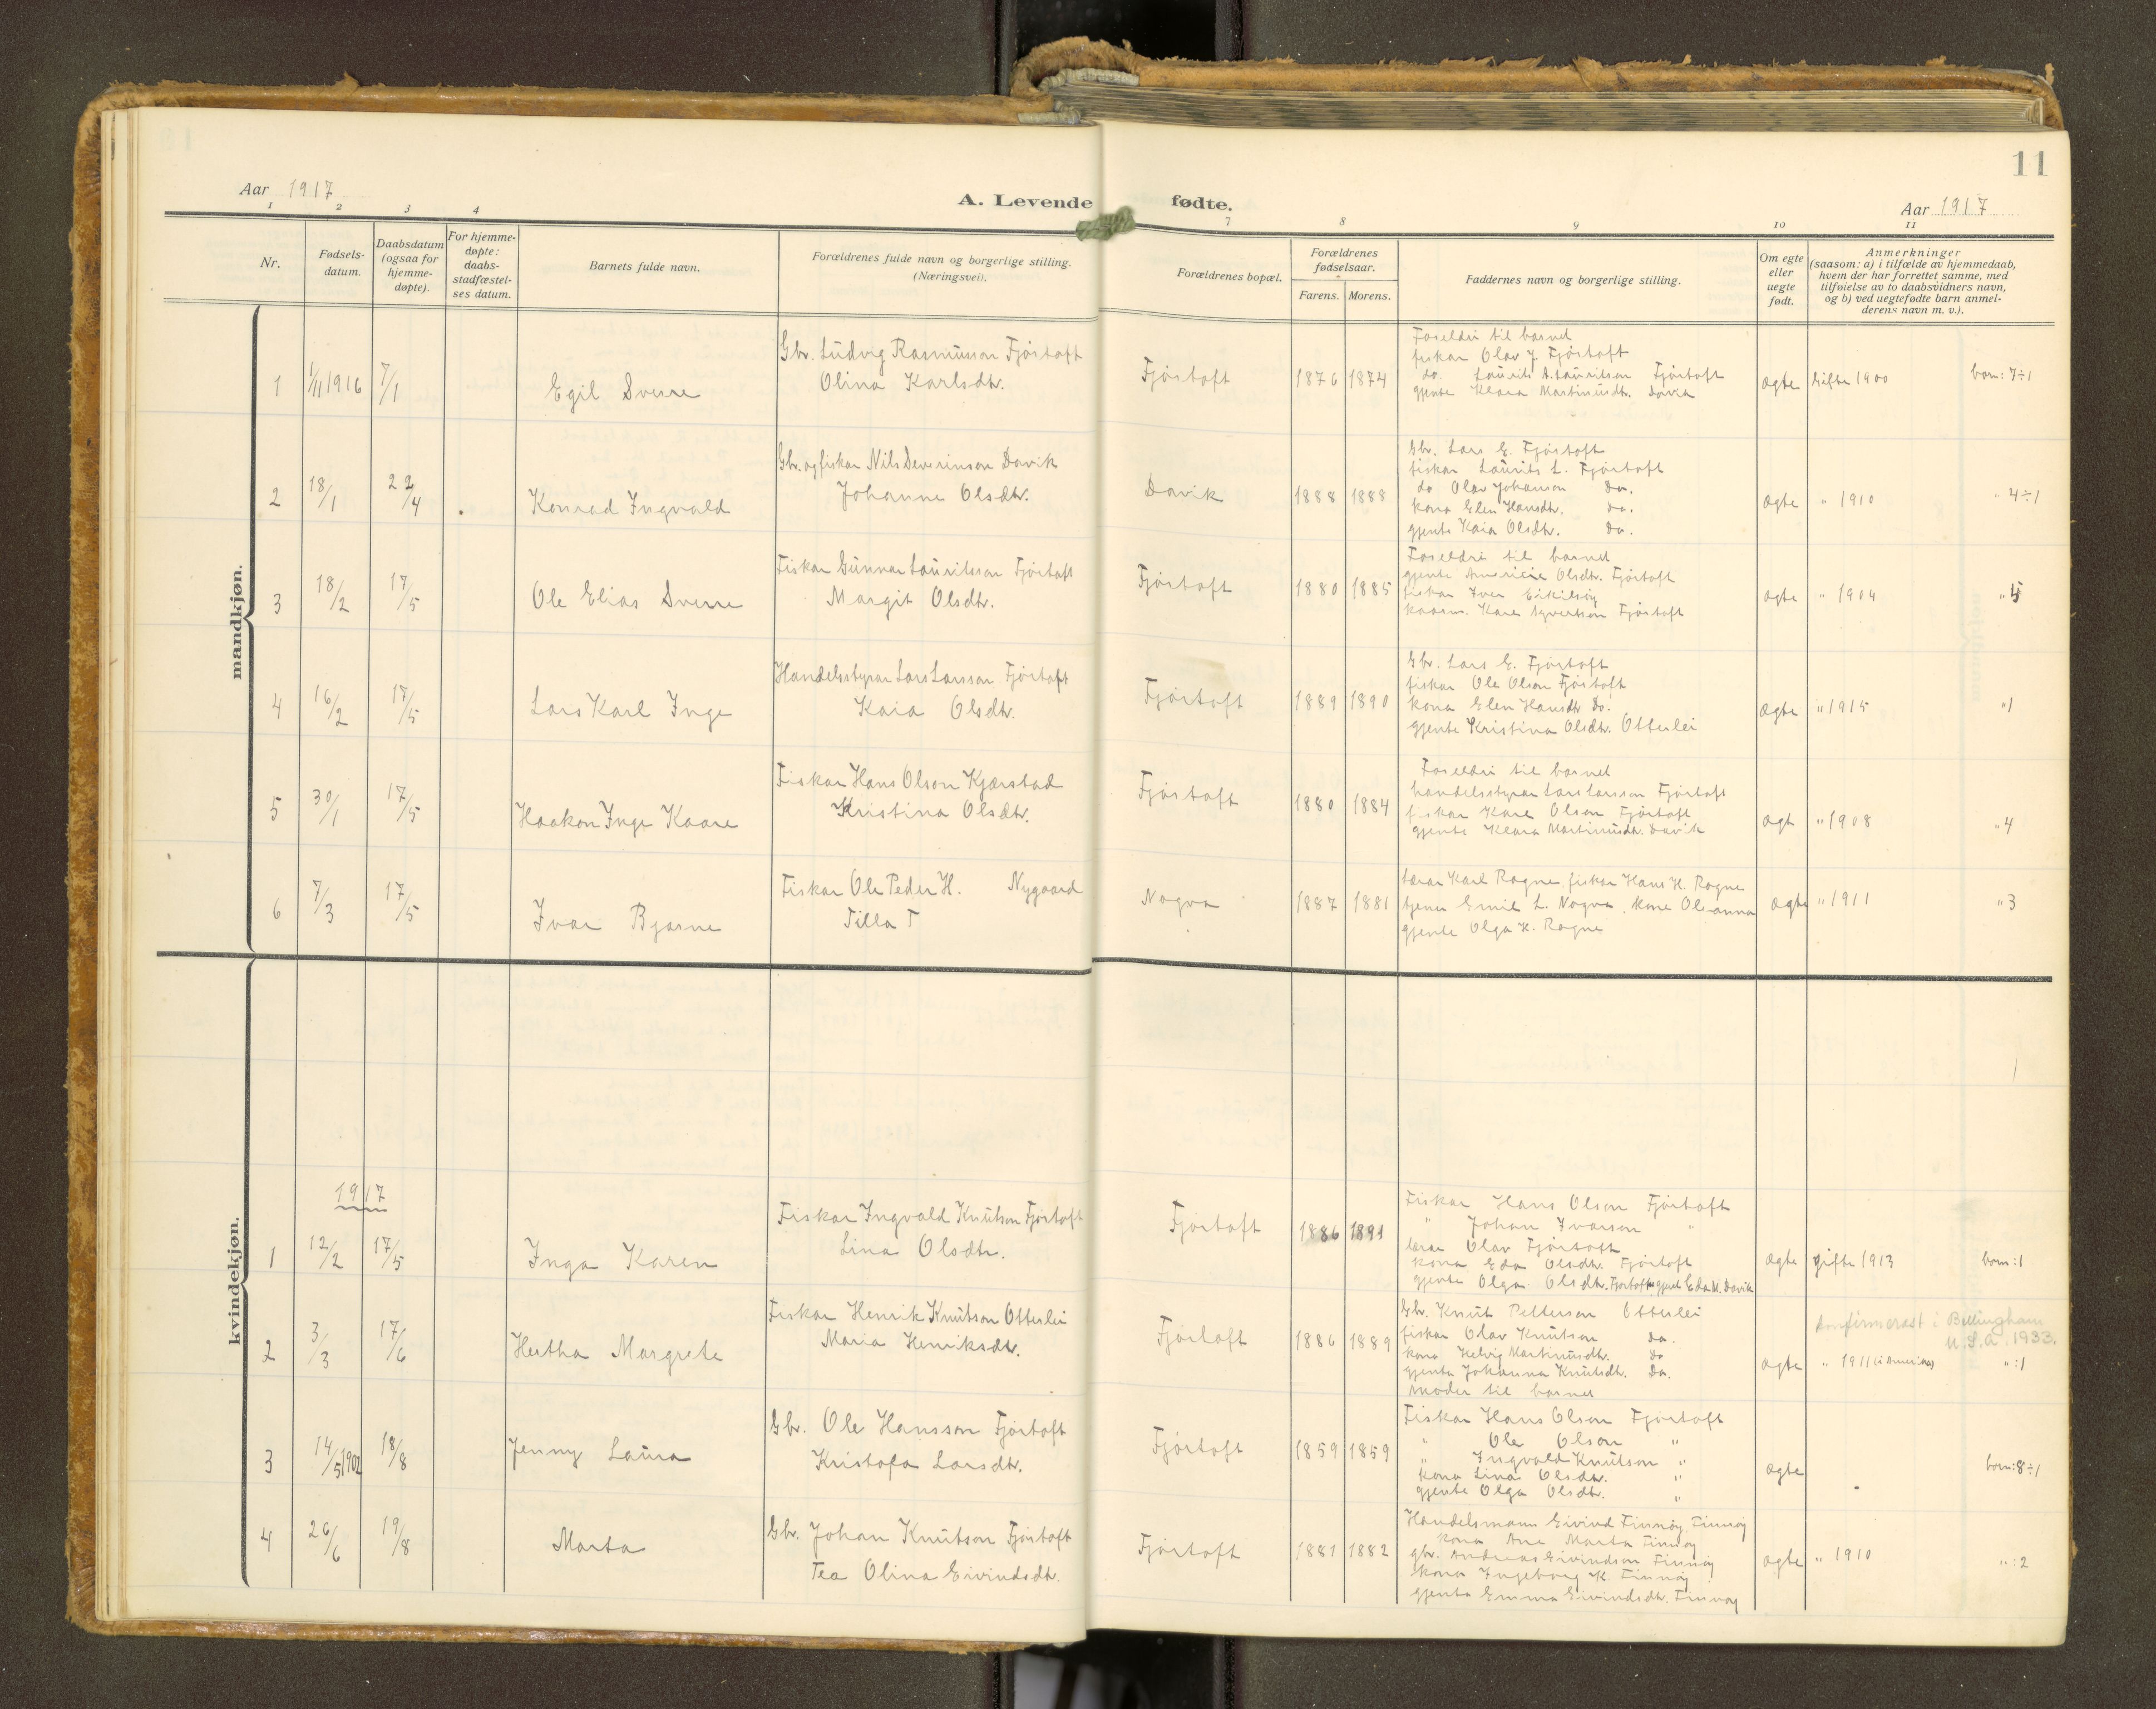 11
Aar 1917
A. Levende fødte.
Aar 1917
1 2 3 4 7 8 9 10 11
Nr.
Fødsels-
datum.
Daabsdatum
(ogsaa for
hjemme-
døpte).
For hjemme-
døpte:
daabs-
stadfæstel-
ses datum.
Barnets fulde navn.
Forældrenes fulde navn og borgerlige stilling.
(Næringsvei).
Forældrenes bopæl.
Forældrenes
fødselsaar.
Farens. Morens.
Faddernes navn og borgerlige stilling.
Om egte
eller
uegte
født.
Anmerkninger
(saasom: a) i tilfælde av hjemmedaab,
hvem der har forrettet samme, med
tilføielse av to daabsvidners navn,
og b) ved uegtefødte barn anmel-
derens navn m. v.).
mandkjøn.
1 1/11 1916 7/1 Egil Sverre
Gbr. Ludvig Rasmusson Fjörtoft
Olina Karlsdtr.
Fjörtoft 1876 1874
Foreldri til barnet
fiskar Olav J. Fjörtoft
do. Laurits A. Lauritson Fjörtoft
gjente Klara Martinusdtr. Davik
ægte gifte 1900 born: 7÷1
2 18/1 22/4 Konrad Ingvald
Gbr. og fiskar Nils Severinson Davik
Johanne Olsdtr.
Davik 1888 1888
Gbr. Lars E. Fjörtoft
fiskar Laurits L. Fjörtoft
do Olav Johanson do.
kona Elen Hansdtr. do.
gjente Kaia Olsdtr. do.
ægte " 1910 " 4÷1
3 18/2 17/5 Ole Elias Sverre
Fiskar Gunnar Lauritsson Fjörtoft
Margit Olsdtr.
Fjörtoft 1880 1885
Foreldri til barnet
gjente Olsdtr. Fjörtoft
fiskar Iver
Kare Syvertson Fjörtoft
ægte " 1904 " 5
4 16/2 17/5 Lars Karl Inge
Handelsstyrar Lars Larsson Fjörtoft
Kaia Olsdtr.
Fjörtoft 1889 1890
Gbr. Lars E. Fjörtoft
fiskar Ole Olson Fjörtoft
kona Elen Hansdtr do.
gjente Kristina Olsdtr. Otterlei
ægte " 1915 " 1
5 30/1 17/5 Haakon Inge Kaare
Fiskar Hans Olson Kjærstad
Kristina Olsdtr.
Fjörtoft 1880 1884
Foreldri til barnet
handelsstyrar Lars Larsson Fjörtoft
fiskar Kare Olson Fjörtoft
gjente Klara Martinusdtr. Davik
ægt " 1908 " 4
6 7/3 17/5 Ivar Bjarne
Fiskar Ole Peder H. Nygaard
Tilla T
Nogva 1887 1881
Lærar Karl Rogne, fiskar Hans H. Rogne
tjener Emil L. Nogva, kone Oleanna
gjente Olga H. Rogne
ægte " 1911 " 3
kvindekjøn.
1917
1 12/2 17/5 Inga Karen
Fiskar Ingvald Knutson Fjörtoft
Lina Olsdtr.
Fjörtoft 1886 1891
Fiskar Hans Olson Fjörtoft
" Johan Ivarson "
lærar Olav Fjörtoft
kona Eda Olsdtr. Fjörtoft
gjente Olga Olsdtr. Fjørtoft gjente Eda M. Davik
ægte gifte 1913 born: 1
2 3/3 17/6 Hertha Margrete
Fiskar Henrik Knutson Otterlei
Maria Henriksdtr.
Fjörtoft 1886 1889
Gbr. Knut Petterson Otterlei
fiskar Olav Knutson do.
kona Helvig Martinusdtr. do
gjente Johanna Knutsdtr. Do.
moder til barnet
Konfirmerast i Bellingham
U.S.A. 1933.
ægte " 1911 (i Amerika) ": 1
3 14/5 1902 18/8 Jenny Laura
Gbr. Ole Hansson Fjörtoft
Kristofa Larsdtr.
Fjörtoft 1859 1859
Fiskar Hans Olson Fjörtoft
" Ole Olson "
" Ingvald Knutson "
kona Lina Olsdtr. "
gjente Olga Olsdtr. "
ægte born: 8÷1
4 26/6 19/8 Marta
Gbr. Johan Knutson Fjörtoft
Tea Olina Eivindsdtr.
Fjörtoft 1881 1882
Handelsmann Eivind Finnøy, Finnöy
kona Ane Marta Finnöy
gbr. Andreas Eivindson Finnöy
kona Ingeborg K. Finnöy
gjenta Emma Eivindsdtr. Finnöy
ægte " 1910 ": 2